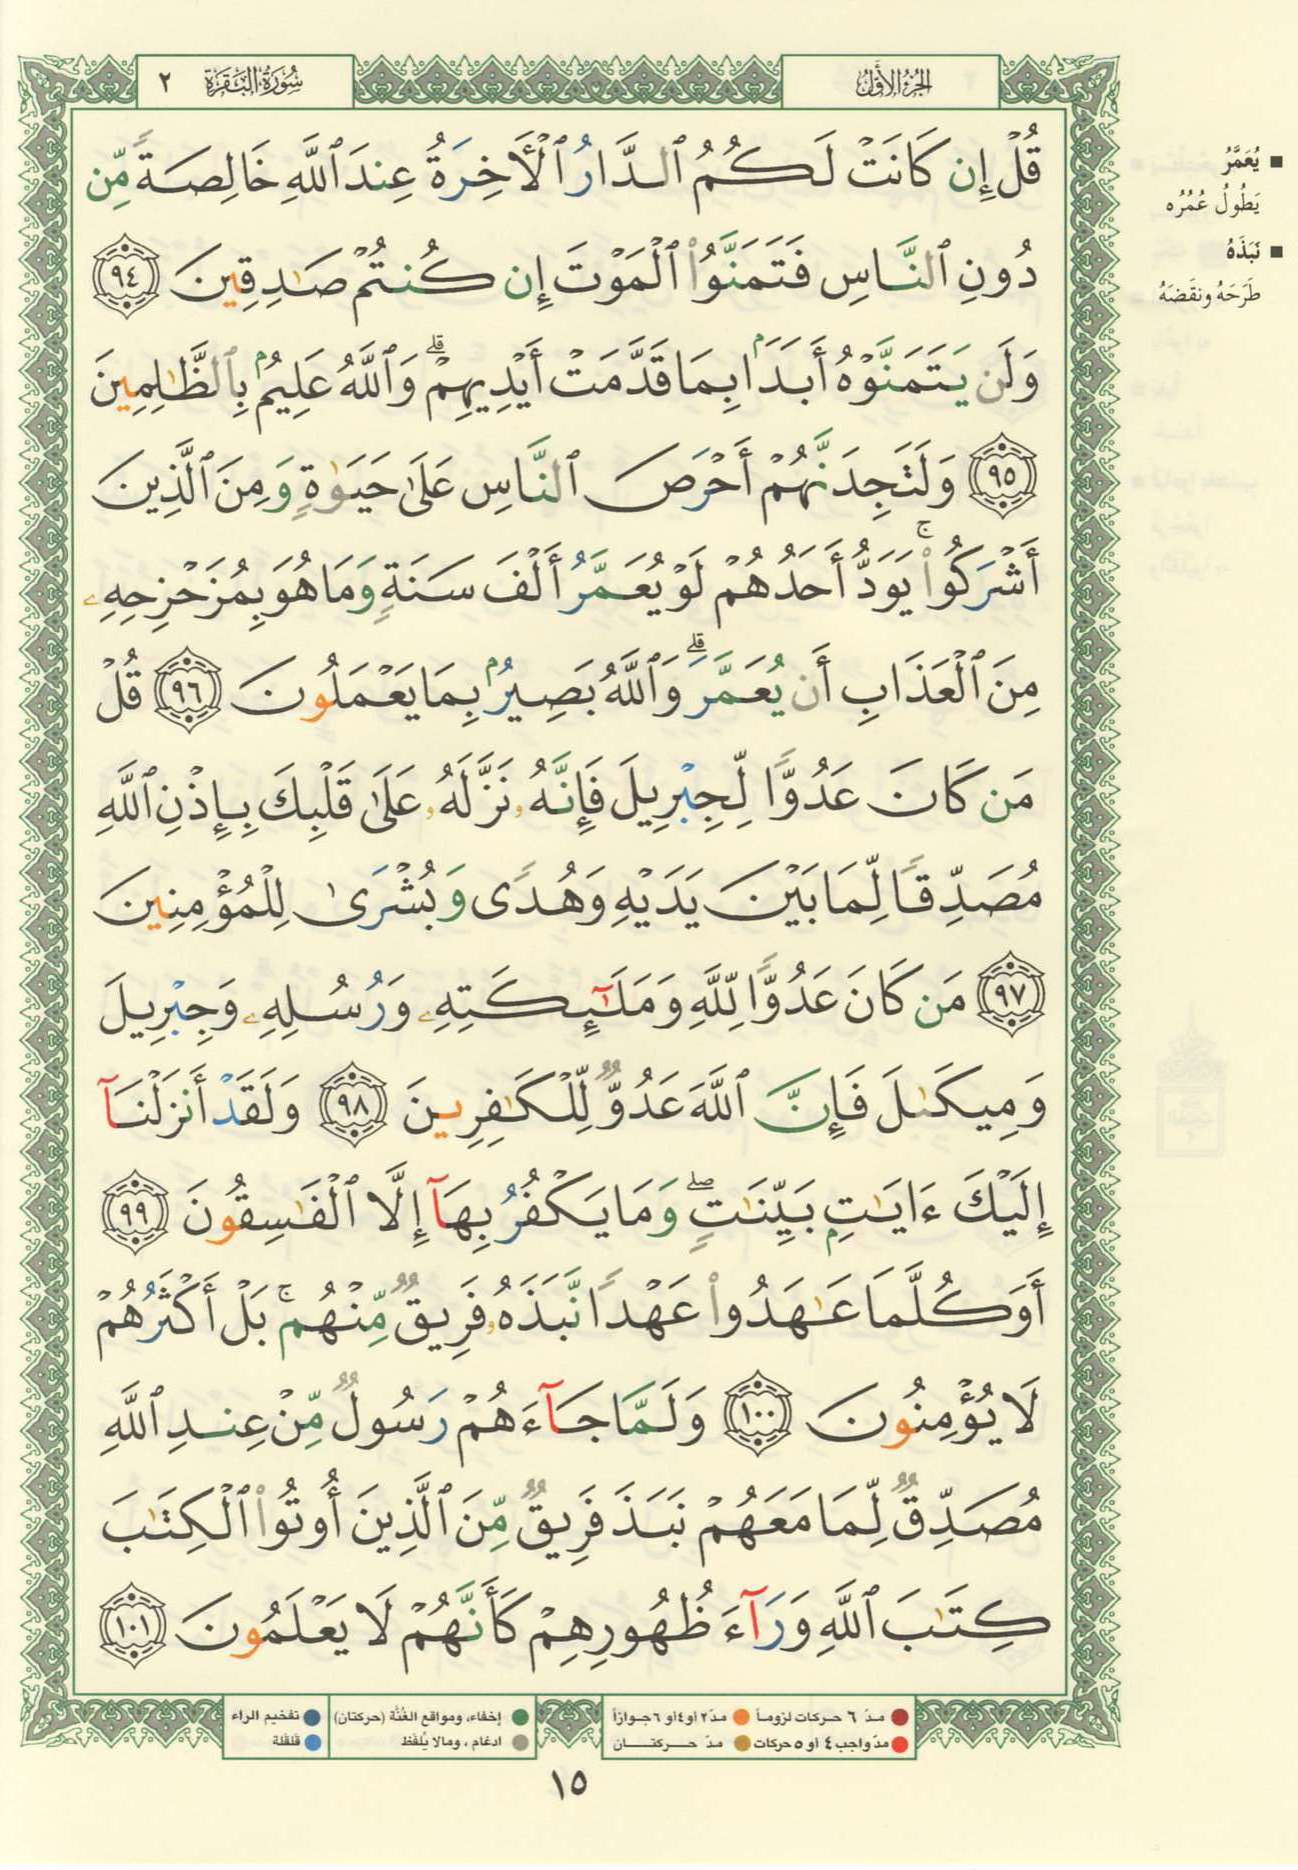 الجزء الأول
سورة البقرة ٢
قُلْ إِن كَانَتْ لَكُمُ ٱلدَّارُ ٱلْأَخِرَةُ عِندَ ٱللَّهِ خَالِصَةً مِّن
دُونِ ٱلنَّاسِ فَتَمَنَّوُا۟ ٱلْمَوْتَ إِن كُنتُمْ صَٰدِقِينَ ٩٤
وَلَن يَتَمَنَّوْهُ أَبَدَۢا بِمَا قَدَّمَتْ أَيْدِيهِمْ ۗ وَٱللَّهُ عَلِيمُۢ بِٱلظَّٰلِمِينَ
٩٥ وَلَتَجِدَنَّهُمْ أَحْرَصَ ٱلنَّاسِ عَلَىٰ حَيَوٰةٍ وَمِنَ ٱلَّذِينَ
أَشْرَكُوا۟ ۚ يَوَدُّ أَحَدُهُمْ لَوْ يُعَمَّرُ أَلْفَ سَنَةٍ وَمَا هُوَ بِمُزَحْزِحِهِۦ
مِنَ ٱلْعَذَابِ أَن يُعَمَّرَ ۗ وَٱللَّهُ بَصِيرُۢ بِمَا يَعْمَلُونَ ٩٦ قُلْ
مَن كَانَ عَدُوًّا لِّجِبْرِيلَ فَإِنَّهُۥ نَزَّلَهُۥ عَلَىٰ قَلْبِكَ بِإِذْنِ ٱللَّهِ
مُصَدِّقًا لِّمَا بَيْنَ يَدَيْهِ وَهُدًى وَبُشْرَىٰ لِلْمُؤْمِنِينَ
٩٧ مَن كَانَ عَدُوًّا لِّلَّهِ وَمَلَٰٓئِكَتِهِۦ وَرُسُلِهِۦ وَجِبْرِيلَ
وَمِيكَىٰلَ فَإِنَّ ٱللَّهَ عَدُوٌّ لِّلْكَٰفِرِينَ ٩٨ وَلَقَدْ أَنزَلْنَآ
إِلَيْكَ ءَايَٰتِۭ بَيِّنَٰتٍ ۖ وَمَا يَكْفُرُ بِهَآ إِلَّا ٱلْفَٰسِقُونَ ٩٩
أَوَكُلَّمَا عَٰهَدُوا۟ عَهْدًا نَّبَذَهُۥ فَرِيقٌ مِّنْهُم ۚ بَلْ أَكْثَرُهُمْ
لَا يُؤْمِنُونَ ١٠٠ وَلَمَّا جَآءَهُمْ رَسُولٌ مِّنْ عِندِ ٱللَّهِ
مُصَدِّقٌ لِّمَا مَعَهُمْ نَبَذَ فَرِيقٌ مِّنَ ٱلَّذِينَ أُوتُوا۟ ٱلْكِتَٰبَ
كِتَٰبَ ٱللَّهِ وَرَآءَ ظُهُورِهِمْ كَأَنَّهُمْ لَا يَعْلَمُونَ ١٠١
يُعَمَّرُ
يَطُولُ عُمُرُه
نَبَذَهُ
طَرَحَهُ ونَقَضَهُ
مدّ ٦ حركات لزوماً
مدّ ٢ أو ٤ أو ٦ جوازاً
إخفاء، ومواقع الغُنَّة (حركتان)
تفخيم الراء
مدّ واجب ٤ أو ٥ حركات
مدّ حركتان
ادغام ، ومالا يُلفَظ
قلقلة
١٥